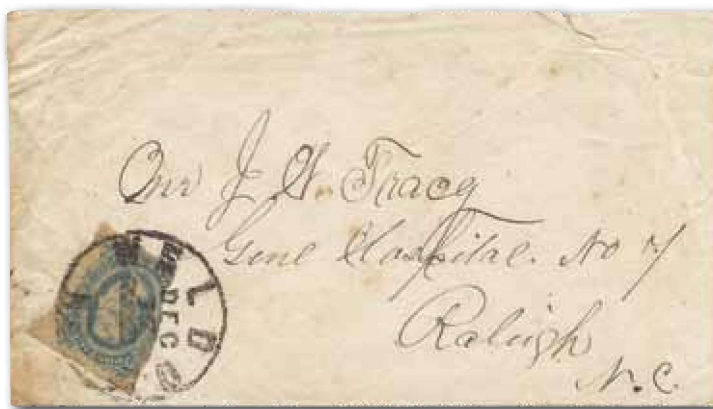 Mr J. W. Tracy
Genl Hospital. No 7
Raleigh
N. C.
WELDON
DEC